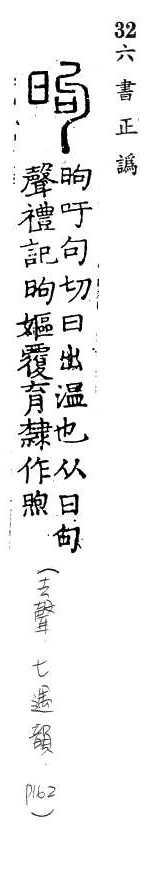 32 六書正譌
昫
昫吁句切日出温也从日句
聲禮記昫嫗覆育隸作煦
(去聲 七遇韻 p162)